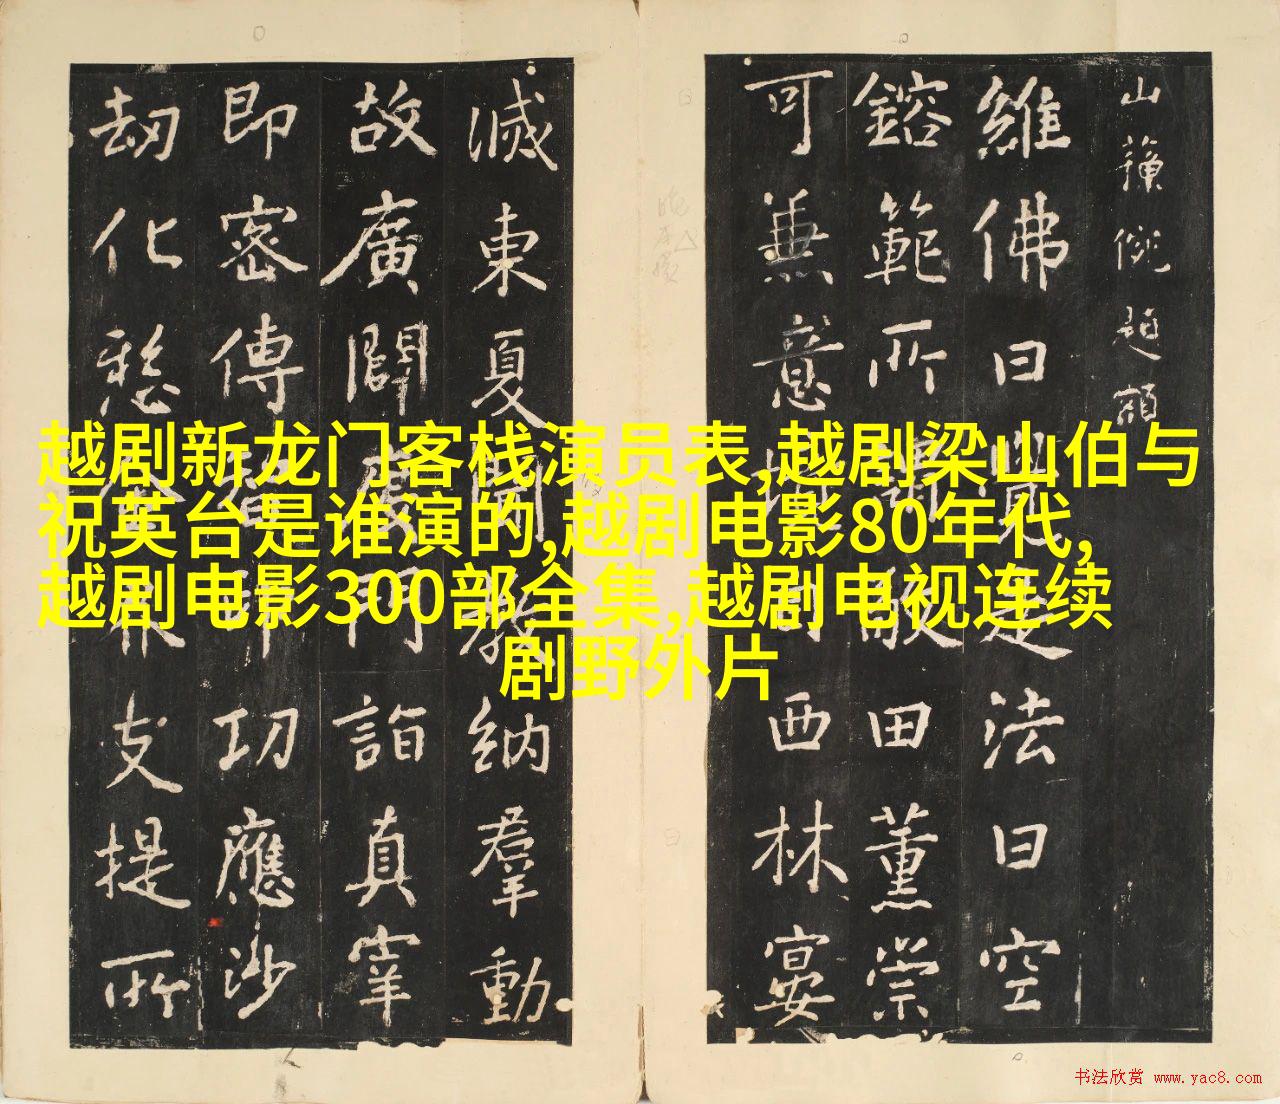 山
維佛日法日空
鎔範所田薰崇
可兼意西林宴
滅東夏闡教納羣動
故廣闢門詣真宰
即密傳功應沙
劫化愍支提所
越剧新龙门客栈演员表,越剧梁山伯与
祝英台是谁演的,越剧电影80年代,
越剧电影300部全集,越剧电视连续
剧野外片
书法欣赏 www.yac8.com